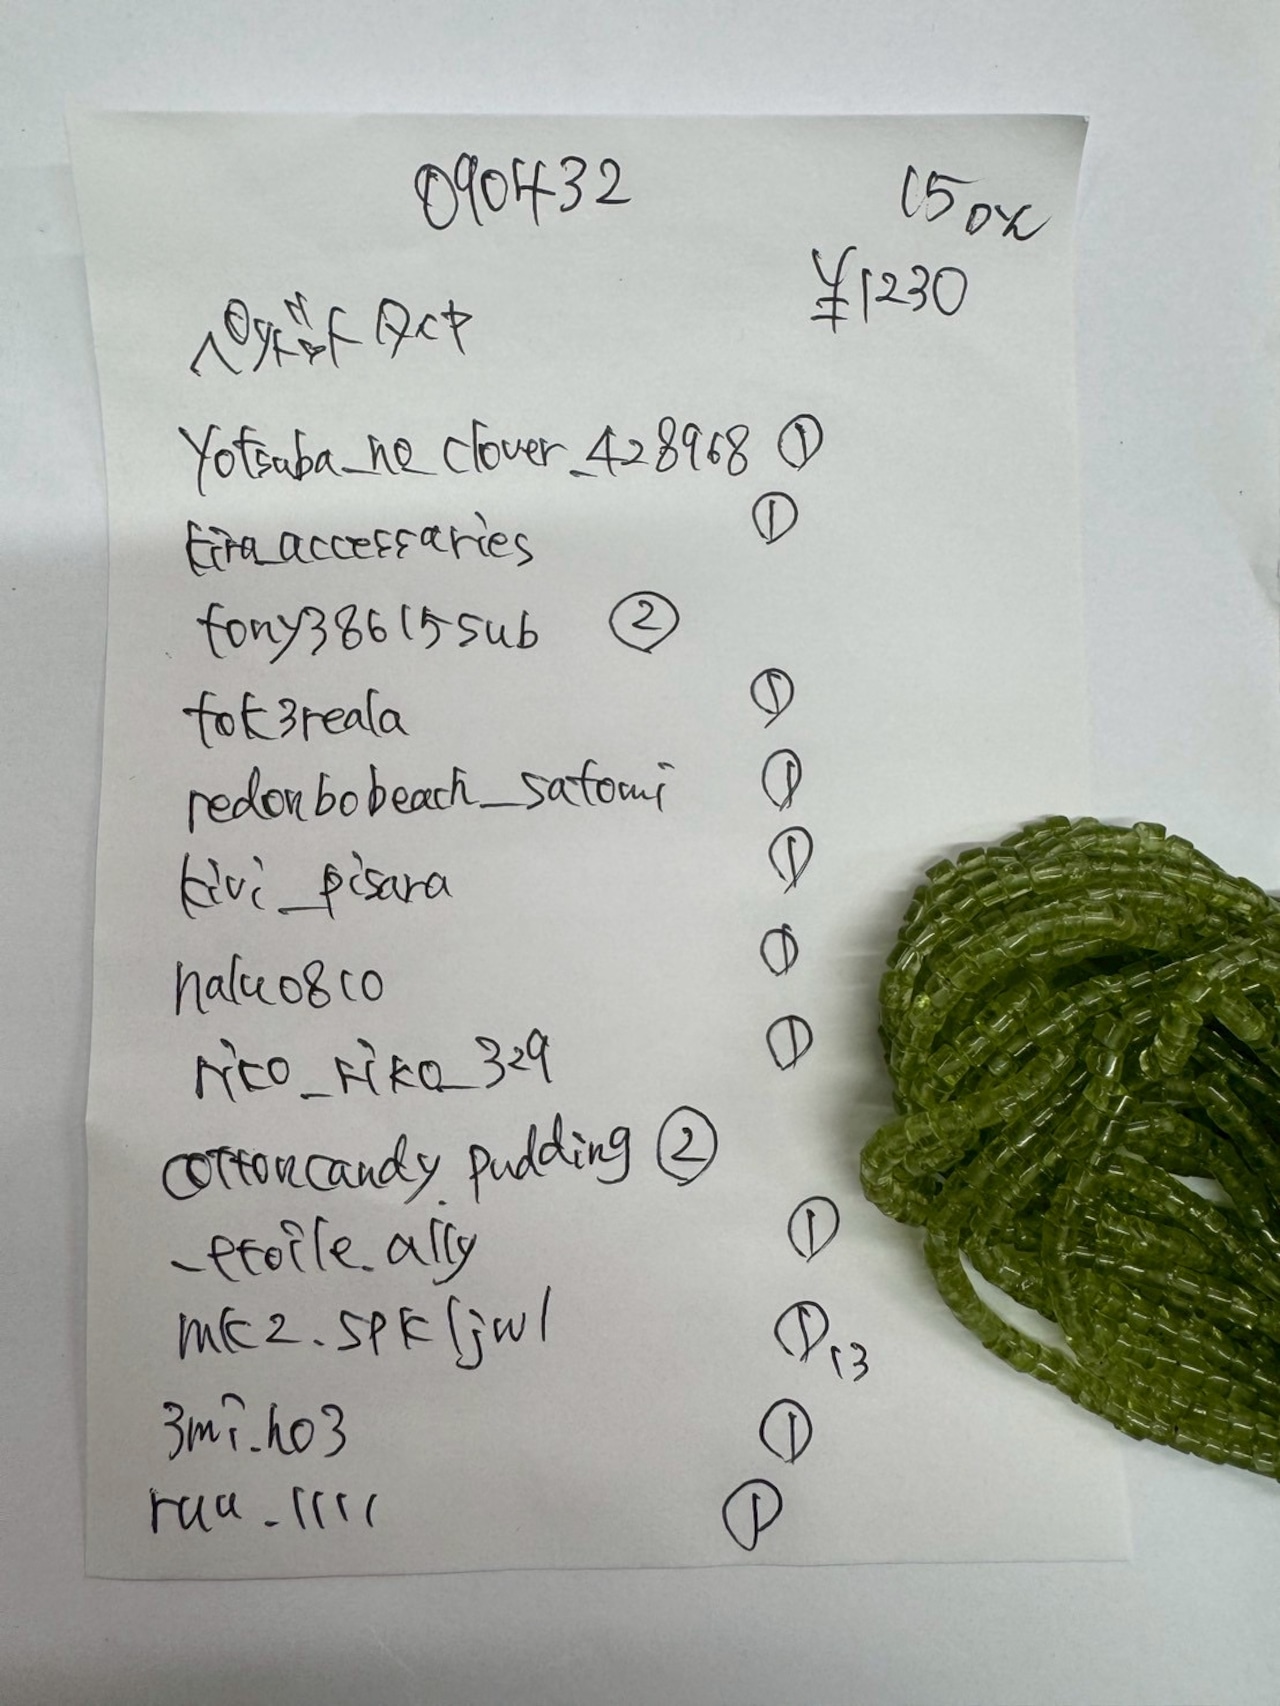 090432
150%
¥1230
ペリドット ACP
Yotsuba_no_clover_428968 ①
kira_accessaries ①
tony38615sub ②
tok3reala ①
redonbobeach_satomi ①
kivi_pisara ①
nalu0810 ①
riko_riko_329 ①
cottoncandy.pudding ②
_etoile.ally ①
mk2.spkljwl ① 13
3mi.ho3 ①
ruu_1111 ①